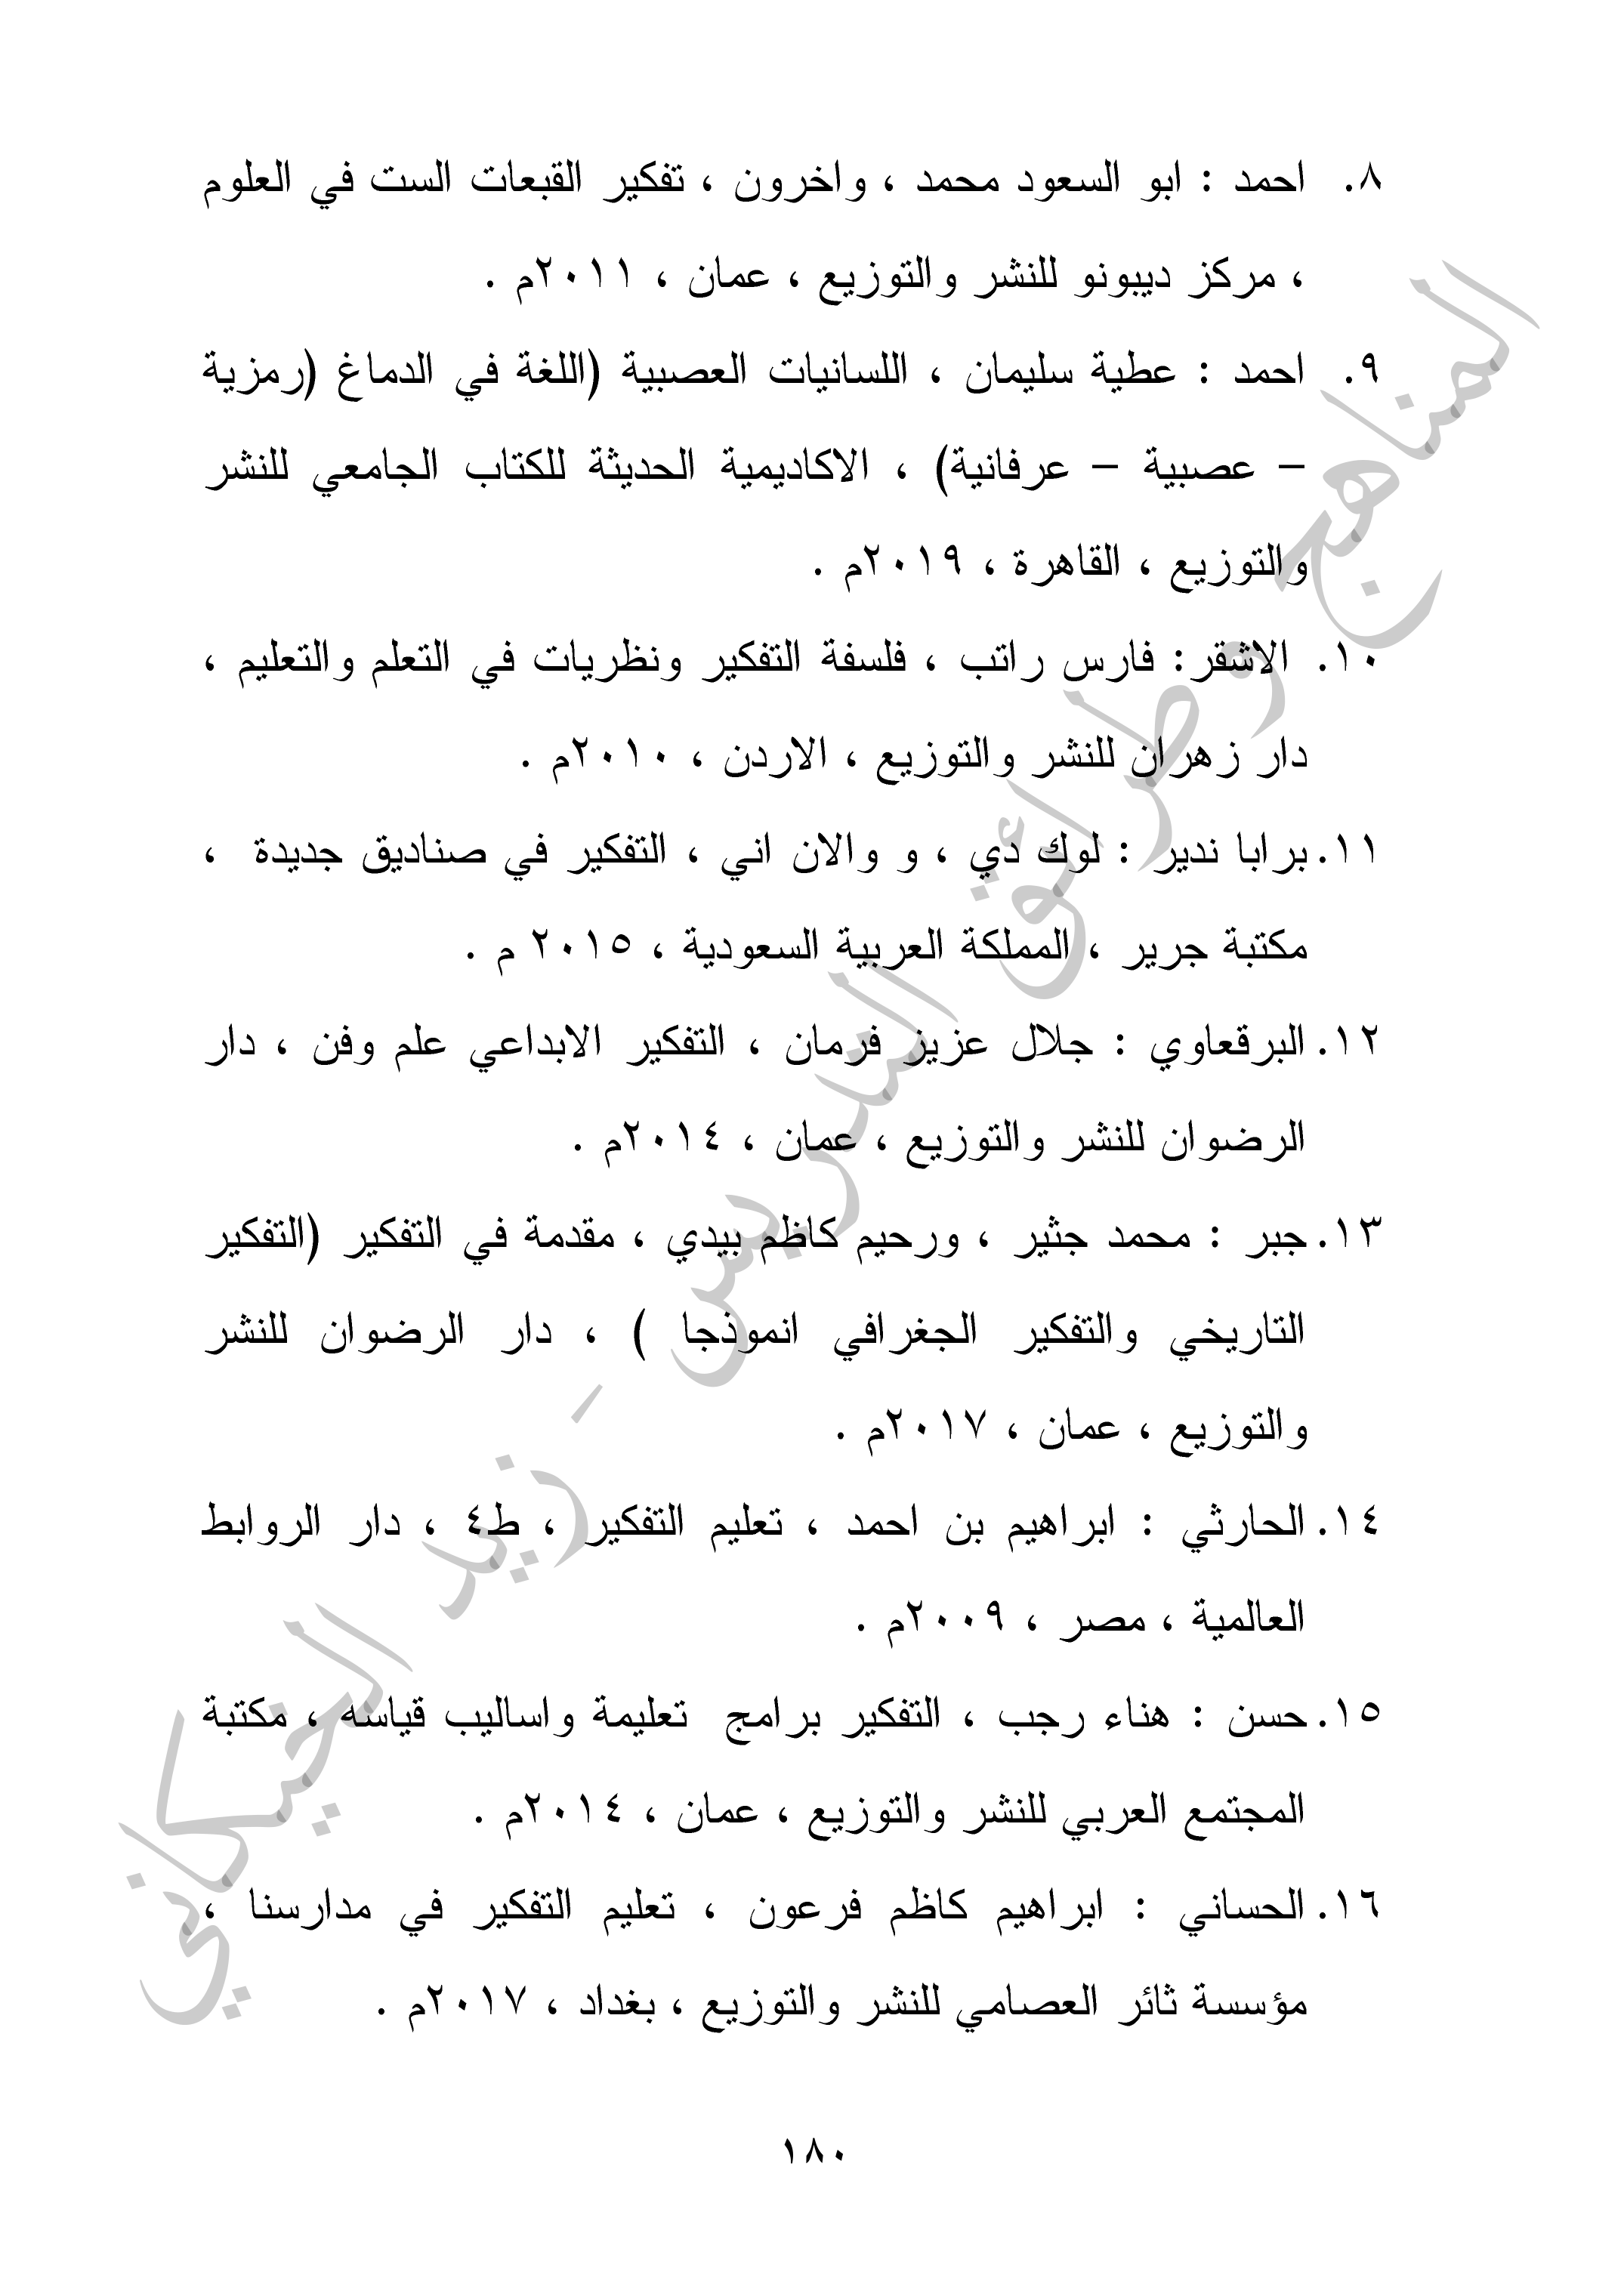 ٨. احمد : ابو السعود محمد ، واخرون ، تفكير القبعات الست في العلوم
، مركز ديبونو للنشر والتوزيع ، عمان ، ٢٠١١م .
٩. احمد : عطية سليمان ، اللسانيات العصبية (اللغة في الدماغ (رمزية
– عصبية – عرفانية) ، الاكاديمية الحديثة للكتاب الجامعي للنشر
والتوزيع ، القاهرة ، ٢٠١٩م .
١٠. الاشقر: فارس راتب ، فلسفة التفكير ونظريات في التعلم والتعليم ،
دار زهران للنشر والتوزيع ، الاردن ، ٢٠١٠م .
١١. برابا ندير : لوك دي ، و والان اني ، التفكير في صناديق جديدة ،
مكتبة جرير ، المملكة العربية السعودية ، ٢٠١٥ م .
١٢. البرقعاوي : جلال عزيز فرمان ، التفكير الابداعي علم وفن ، دار
الرضوان للنشر والتوزيع ، عمان ، ٢٠١٤م .
١٣. جبر : محمد جثير ، ورحيم كاظم بيدي ، مقدمة في التفكير (التفكير
التاريخي والتفكير الجغرافي انموذجا ) ، دار الرضوان للنشر
والتوزيع ، عمان ، ٢٠١٧م .
١٤. الحارثي : ابراهيم بن احمد ، تعليم التفكير ، ط٤ ، دار الروابط
العالمية ، مصر ، ٢٠٠٩م .
١٥. حسن : هناء رجب ، التفكير برامج تعليمة واساليب قياسه ، مكتبة
المجتمع العربي للنشر والتوزيع ، عمان ، ٢٠١٤م .
١٦. الحساني : ابراهيم كاظم فرعون ، تعليم التفكير في مدارسنا ،
مؤسسة ثائر العصامي للنشر والتوزيع ، بغداد ، ٢٠١٧م .
١٨٠
المناهج وطرائق التدريس - زيد الخيكاني